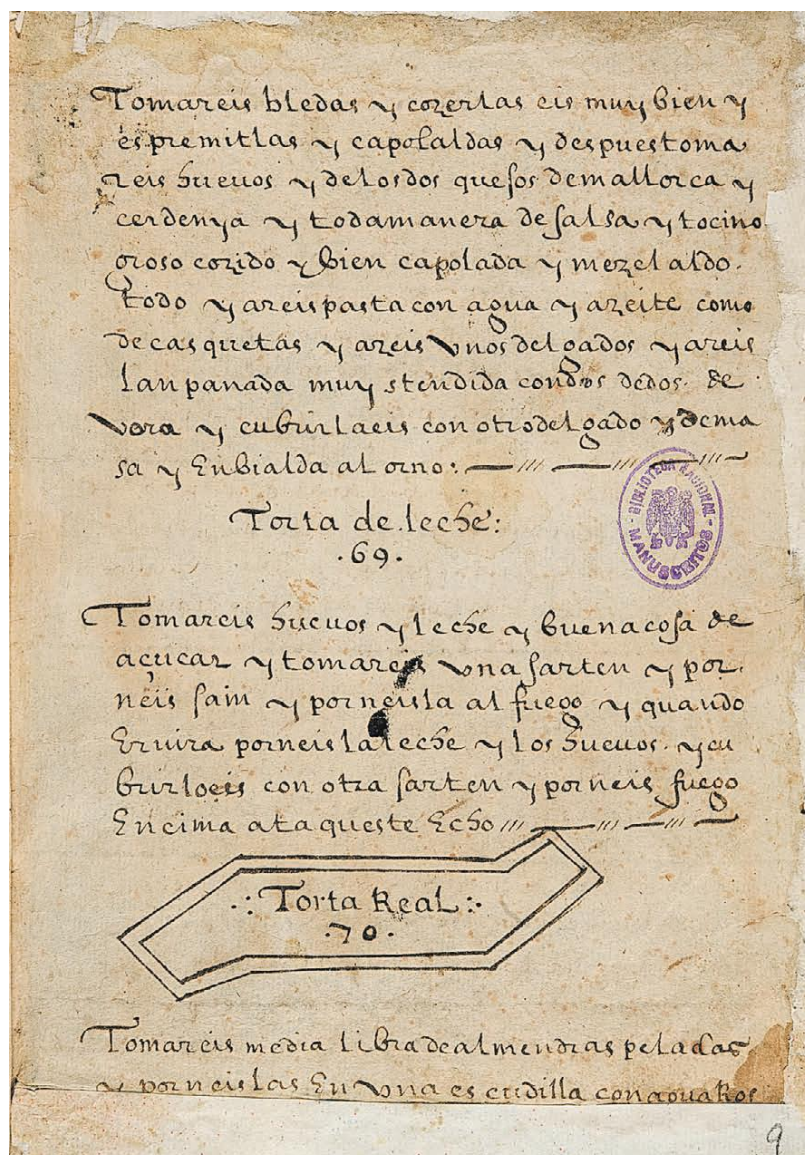 Tomareis bledas y cozerlas eis muy bien y
espremitlas y capolaldas y despues toma
reis huevos y de los dos quesos de mallorca y
cerdenya y toda manera de salsa y tocino
groso cozido y bien capolada y mezelaldo.
todo y areis pasta con agua y azeite como
de casquetas y areis vnos delgados y areis
lanpanada muy stendida con dos dedos. de
vora y cubrirlaeis con otro delgado y de ma
sa y Enbialda al orno:
BIBLIOTECA NACIONAL
MANUSCRITOS
Torta de leche:
.69.
Tomareis huevos y leche y buena cosa de
açucar y tomareis vna sarten y por.
neis sain y porneisla al fuego y quando
Eruira porneis la leche y los huevos. y cu
brirloeis con otra sarten y porneis fuego
Encima ata queste Echo
.: Torta Real :.
.70.
Tomareis media libra de almendras peladas
y porneislas En vna escudilla con agua Ros
9